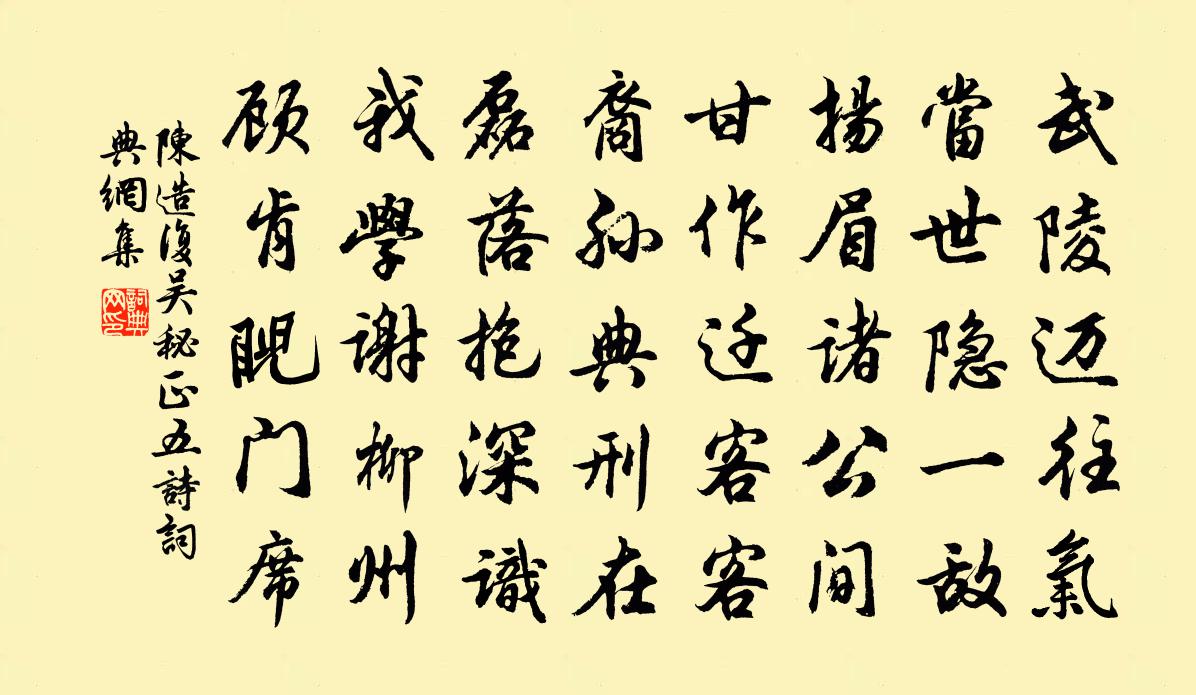 武陵迈往氣
當世隐一敌
揚眉诸公间
甘作迁客客
裔孙典刑在
磊落抱深識
我學谢柳州
顾肯睨门席
陳造復吴秘正五詩詞
典網集
詞典网印